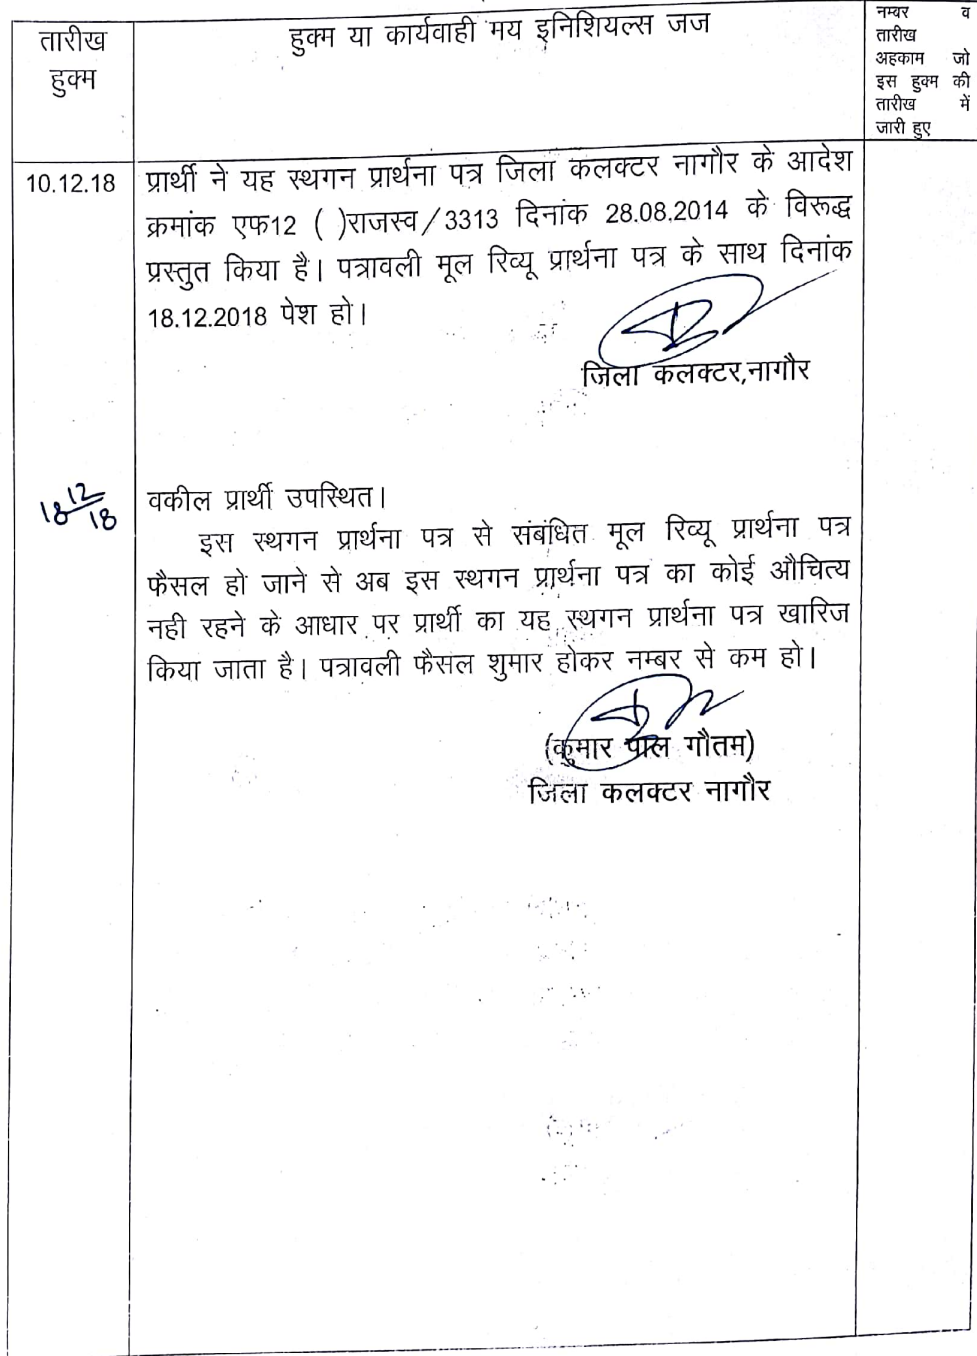 तारीख
हुक्म
हुक्म या कार्यवाही मय इनिशियल्स जज
नम्बर व
तारीख
अहकाम जो
इस हुक्म की
तारीख में
जारी हुए
10.12.18
प्रार्थी ने यह स्थगन प्रार्थना पत्र जिला कलक्टर नागौर के आदेश
क्रमांक एफ12 ( )राजस्व/3313 दिनांक 28.08.2014 के विरूद्ध
प्रस्तुत किया है। पत्रावली मूल रिव्यू प्रार्थना पत्र के साथ दिनांक
18.12.2018 पेश हो।
जिला कलक्टर,नागौर
18 12/18
वकील प्रार्थी उपस्थित।
इस स्थगन प्रार्थना पत्र से संबंधित मूल रिव्यू प्रार्थना पत्र
फैसल हो जाने से अब इस स्थगन प्रार्थना पत्र का कोई औचित्य
नही रहने के आधार पर प्रार्थी का यह स्थगन प्रार्थना पत्र खारिज
किया जाता है। पत्रावली फैसल शुमार होकर नम्बर से कम हो।
(कुमार पाल गौतम)
जिला कलक्टर नागौर